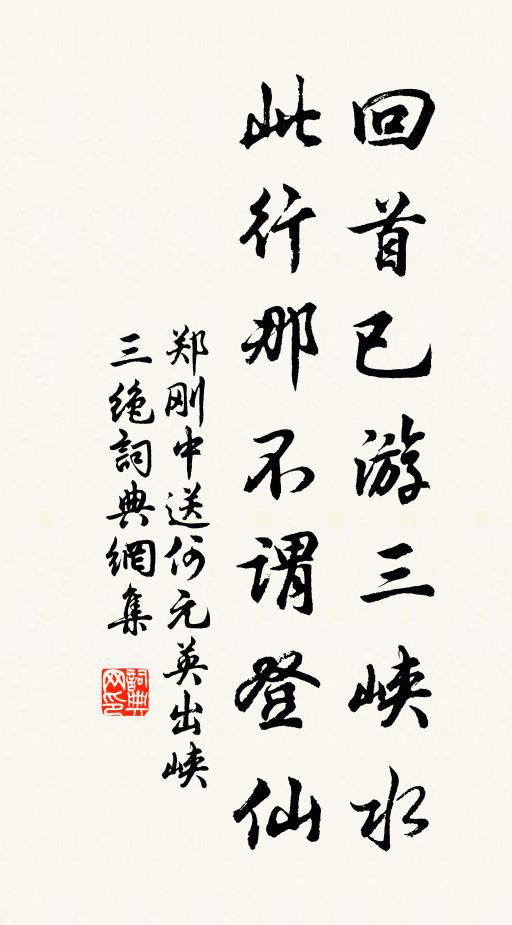 回首已游三峡水
此行那不谓登仙
郑刚中送何元英出峡
三绝詞典網集
詞典
网印